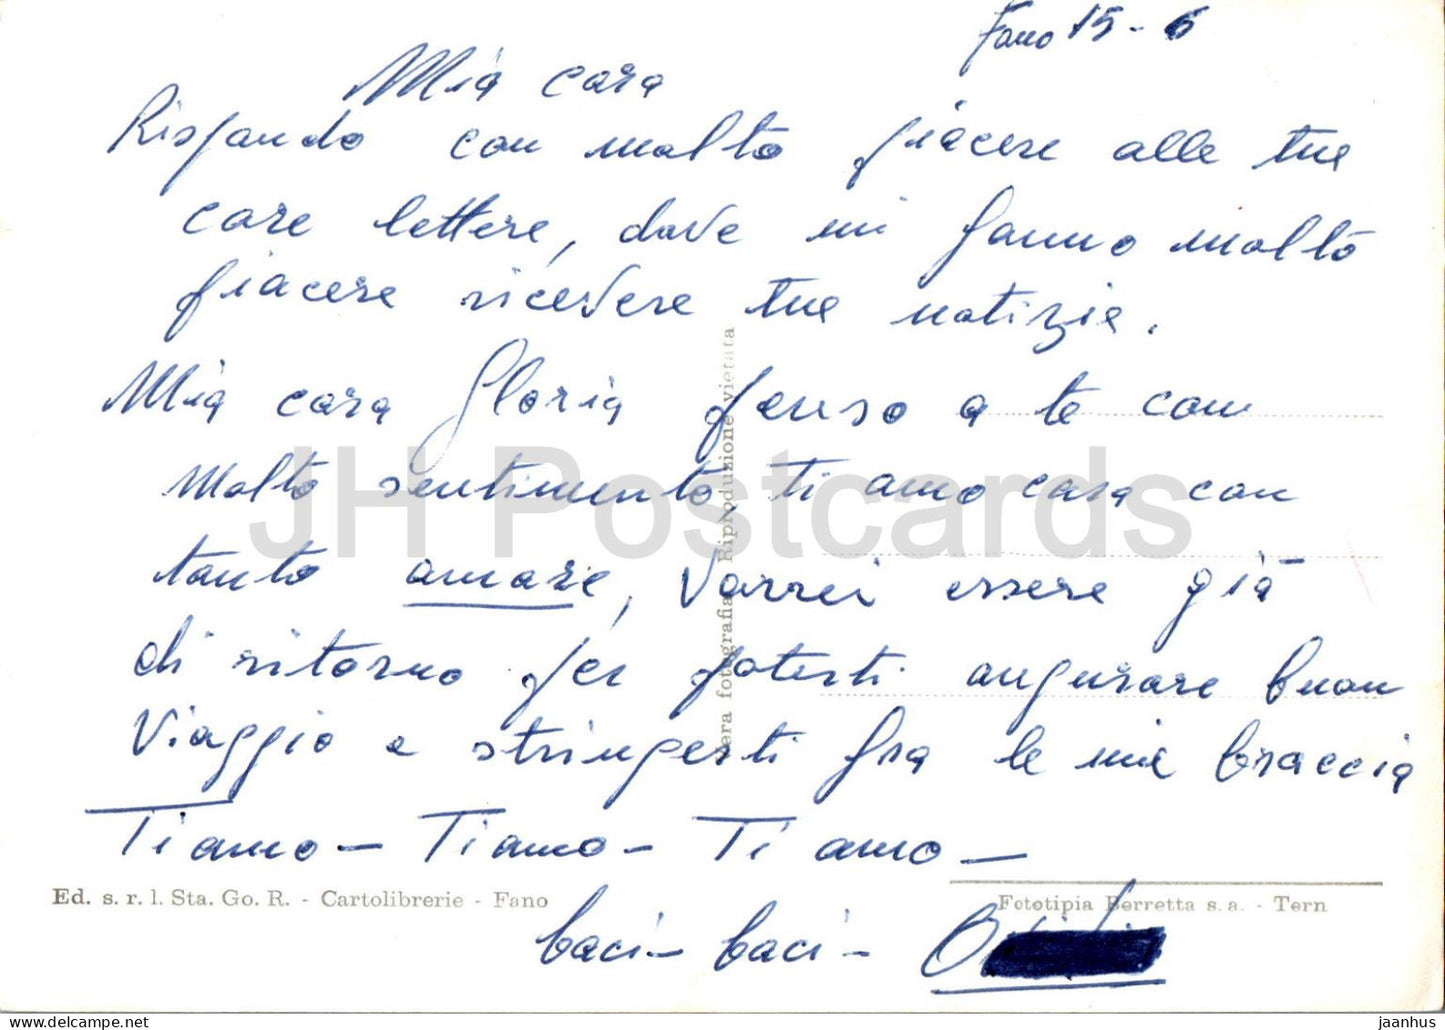 Fano 15-6
Mia cara
Rispondo con molto piacere alle tue
care lettere, dove mi fanno molto
piacere ricevere tue notizie.
Mia cara Gloria penso a te con
molto sentimento, Ti amo cara con
tanto amore, Vorrei essere già
di ritorno per poterti augurare buon
Viaggio e stringerti fra le mie braccia
Ti amo - Ti amo - Ti amo -
baci - baci -
Vera fotografia - Riproduzione vietata
Ed. s. r. l. Sta. Go. R. - Cartolibrerie - Fano
Fototipia Berretta s. a. - Tern
JH Postcards
jaanhus / delcampe.net